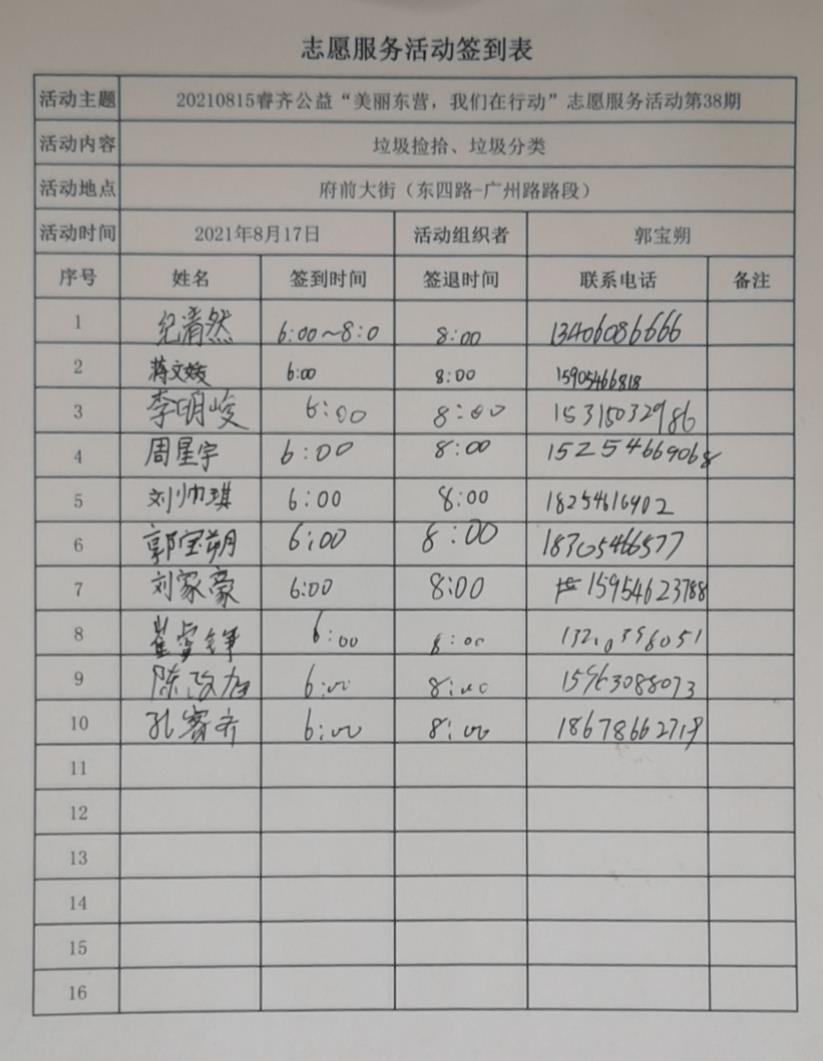 志愿服务活动签到表
活动主题 20210815睿齐公益“美丽东营，我们在行动”志愿服务活动第38期
活动内容 垃圾捡拾、垃圾分类
活动地点 府前大街（东四路-广州路路段）
活动时间 2021年8月17日 活动组织者 郭宝朔
序号 姓名 签到时间 签退时间 联系电话 备注
1 纪清然 6:00~8:0 8:00 13406086666
2 蒋文媛 6:00 8:00 15905466818
3 李明峻 6:00 8:00 15315032986
4 周星宇 6:00 8:00 15254669068
5 刘帅琪 6:00 8:00 18254616902
6 郭宝朔 6:00 8:00 18305466577
7 刘家豪 6:00 8:00 15954623788
8 6:00 8:00
9 陈 6:00 8:00 15963088073
10 孔睿齐 6:00 8:00 18678662719
11
12
13
14
15
16